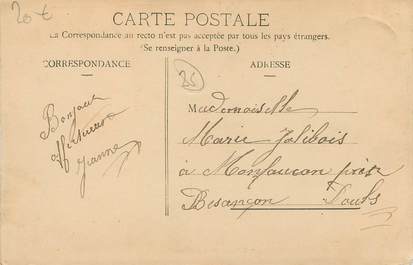 20 €
CARTE POSTALE
La Correspondance au recto n'est pas acceptée par tous les pays étrangers.
(Se renseigner à la Poste.)
CORRESPONDANCE
ADRESSE
25
Bonjour
affectueux
Jeanne
Mademoiselle
Marie Jolibois
à Monfaucon près
Besançon Doubs